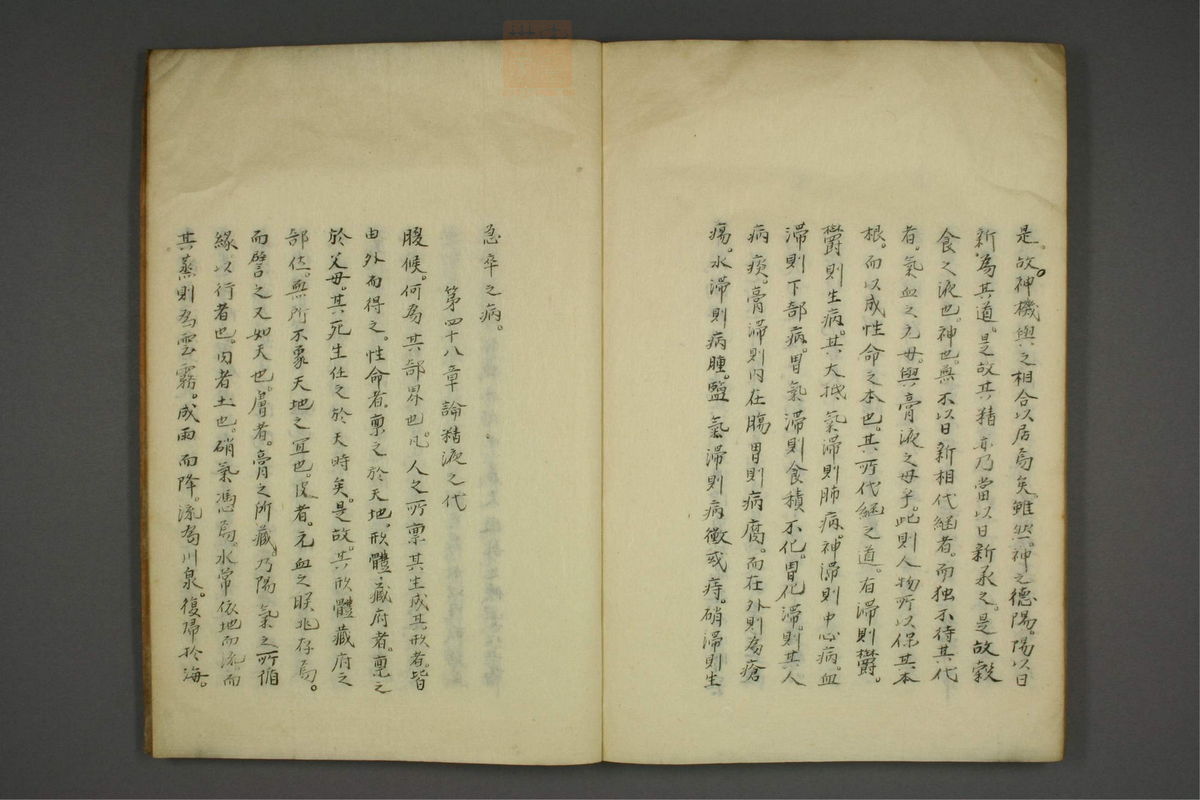 是。故神機與之相合以居焉矣。雖然。神之德陽。陽以日
新。為其道。是故其精亦乃當以日新承之。是故穀
食之液也。神也。無不以日新相代継者。而独不待其代
者。氣血之元母。與膏液之母乎。此則人物所以保其本
根。而以成性命之本也。其所代継之道。有滯則欝。
欝則生病。其大抵氣滯則肺病。神滯則中心病。血
滯則下部病。胃氣滯則食積不化。胃化滯。則其人
病痰。膏滯則内在腸胃則病腐。而在外則為瘡
瘍。水滯則病腫。鹽氣滯則病癥或痔。硝滯則生
急卒之病。
第四十八章論精液之代
腹候。何為其部界也。凡。人之所禀其生成其形者。皆
由外而得之。性命者。禀之於天地。形體藏府者。禀之
於父母。其死生任之於天時矣。是故。其形體藏府之
部位。無所不象天地之宜也。皮者。元血之朕兆存焉。
而譬之又如天也。膚者。膏之所藏。乃陽氣之所循
緣以行者也。肉者土也。硝氣馮焉。水常依地而流。而
其蒸則為雲霧。成雨而降。流為川泉。復帰於海。